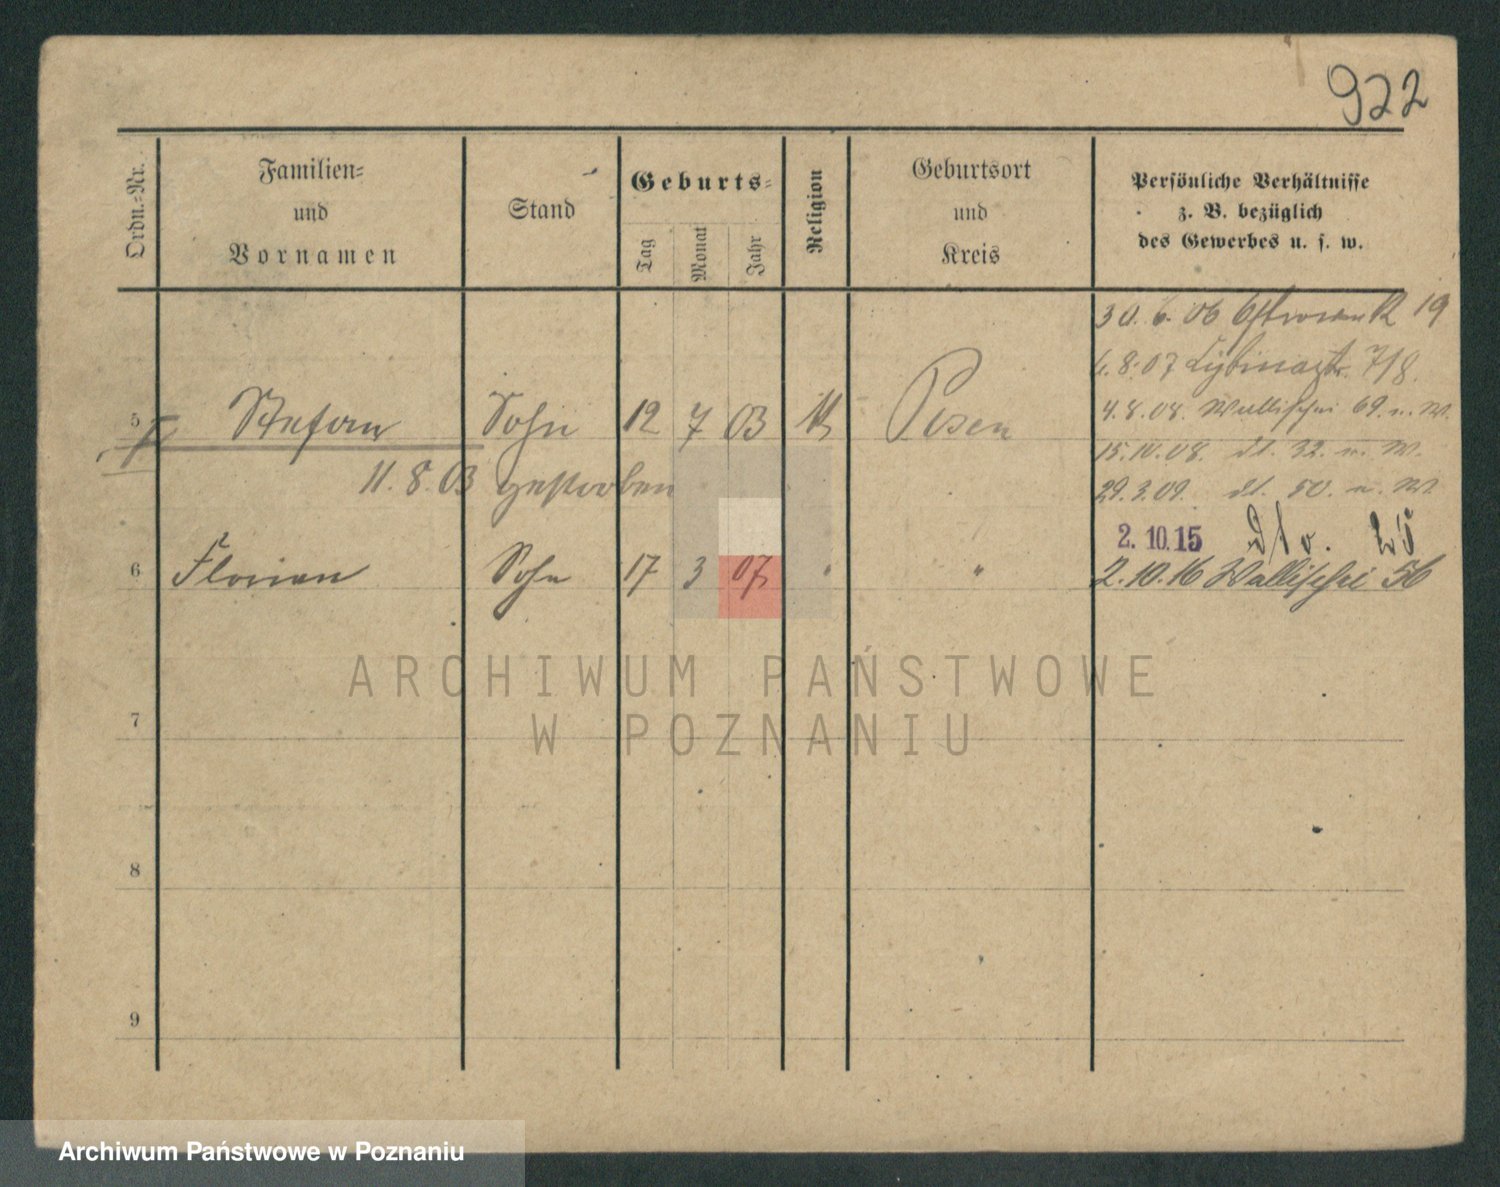 922
Ordn.-Nr.
Familien-
und
Vornamen
Stand
Geburts-
Tag
Monat
Jahr
Religion
Geburtsort
und
Kreis
Persönliche Verhältnisse
z. B. bezüglich
des Gewerbes u. s. w.
30.6.06 19
6.8.07 7/8.
5 Stefan Sohn 12 7 03 K Posen
4.8.08. Wallischei 69. u. W.
15.10.08. dt. 32. u. W.
11.8.03 gestorben
29.3.09. dt. 50. u. W.
2.10.15 dto.
6 Florian Sohn 17 3 07 " "
2.10.16 Wallischei 56
ARCHIWUM PAŃSTWOWE
W POZNANIU
7
8
9
Archiwum Państwowe w Poznaniu